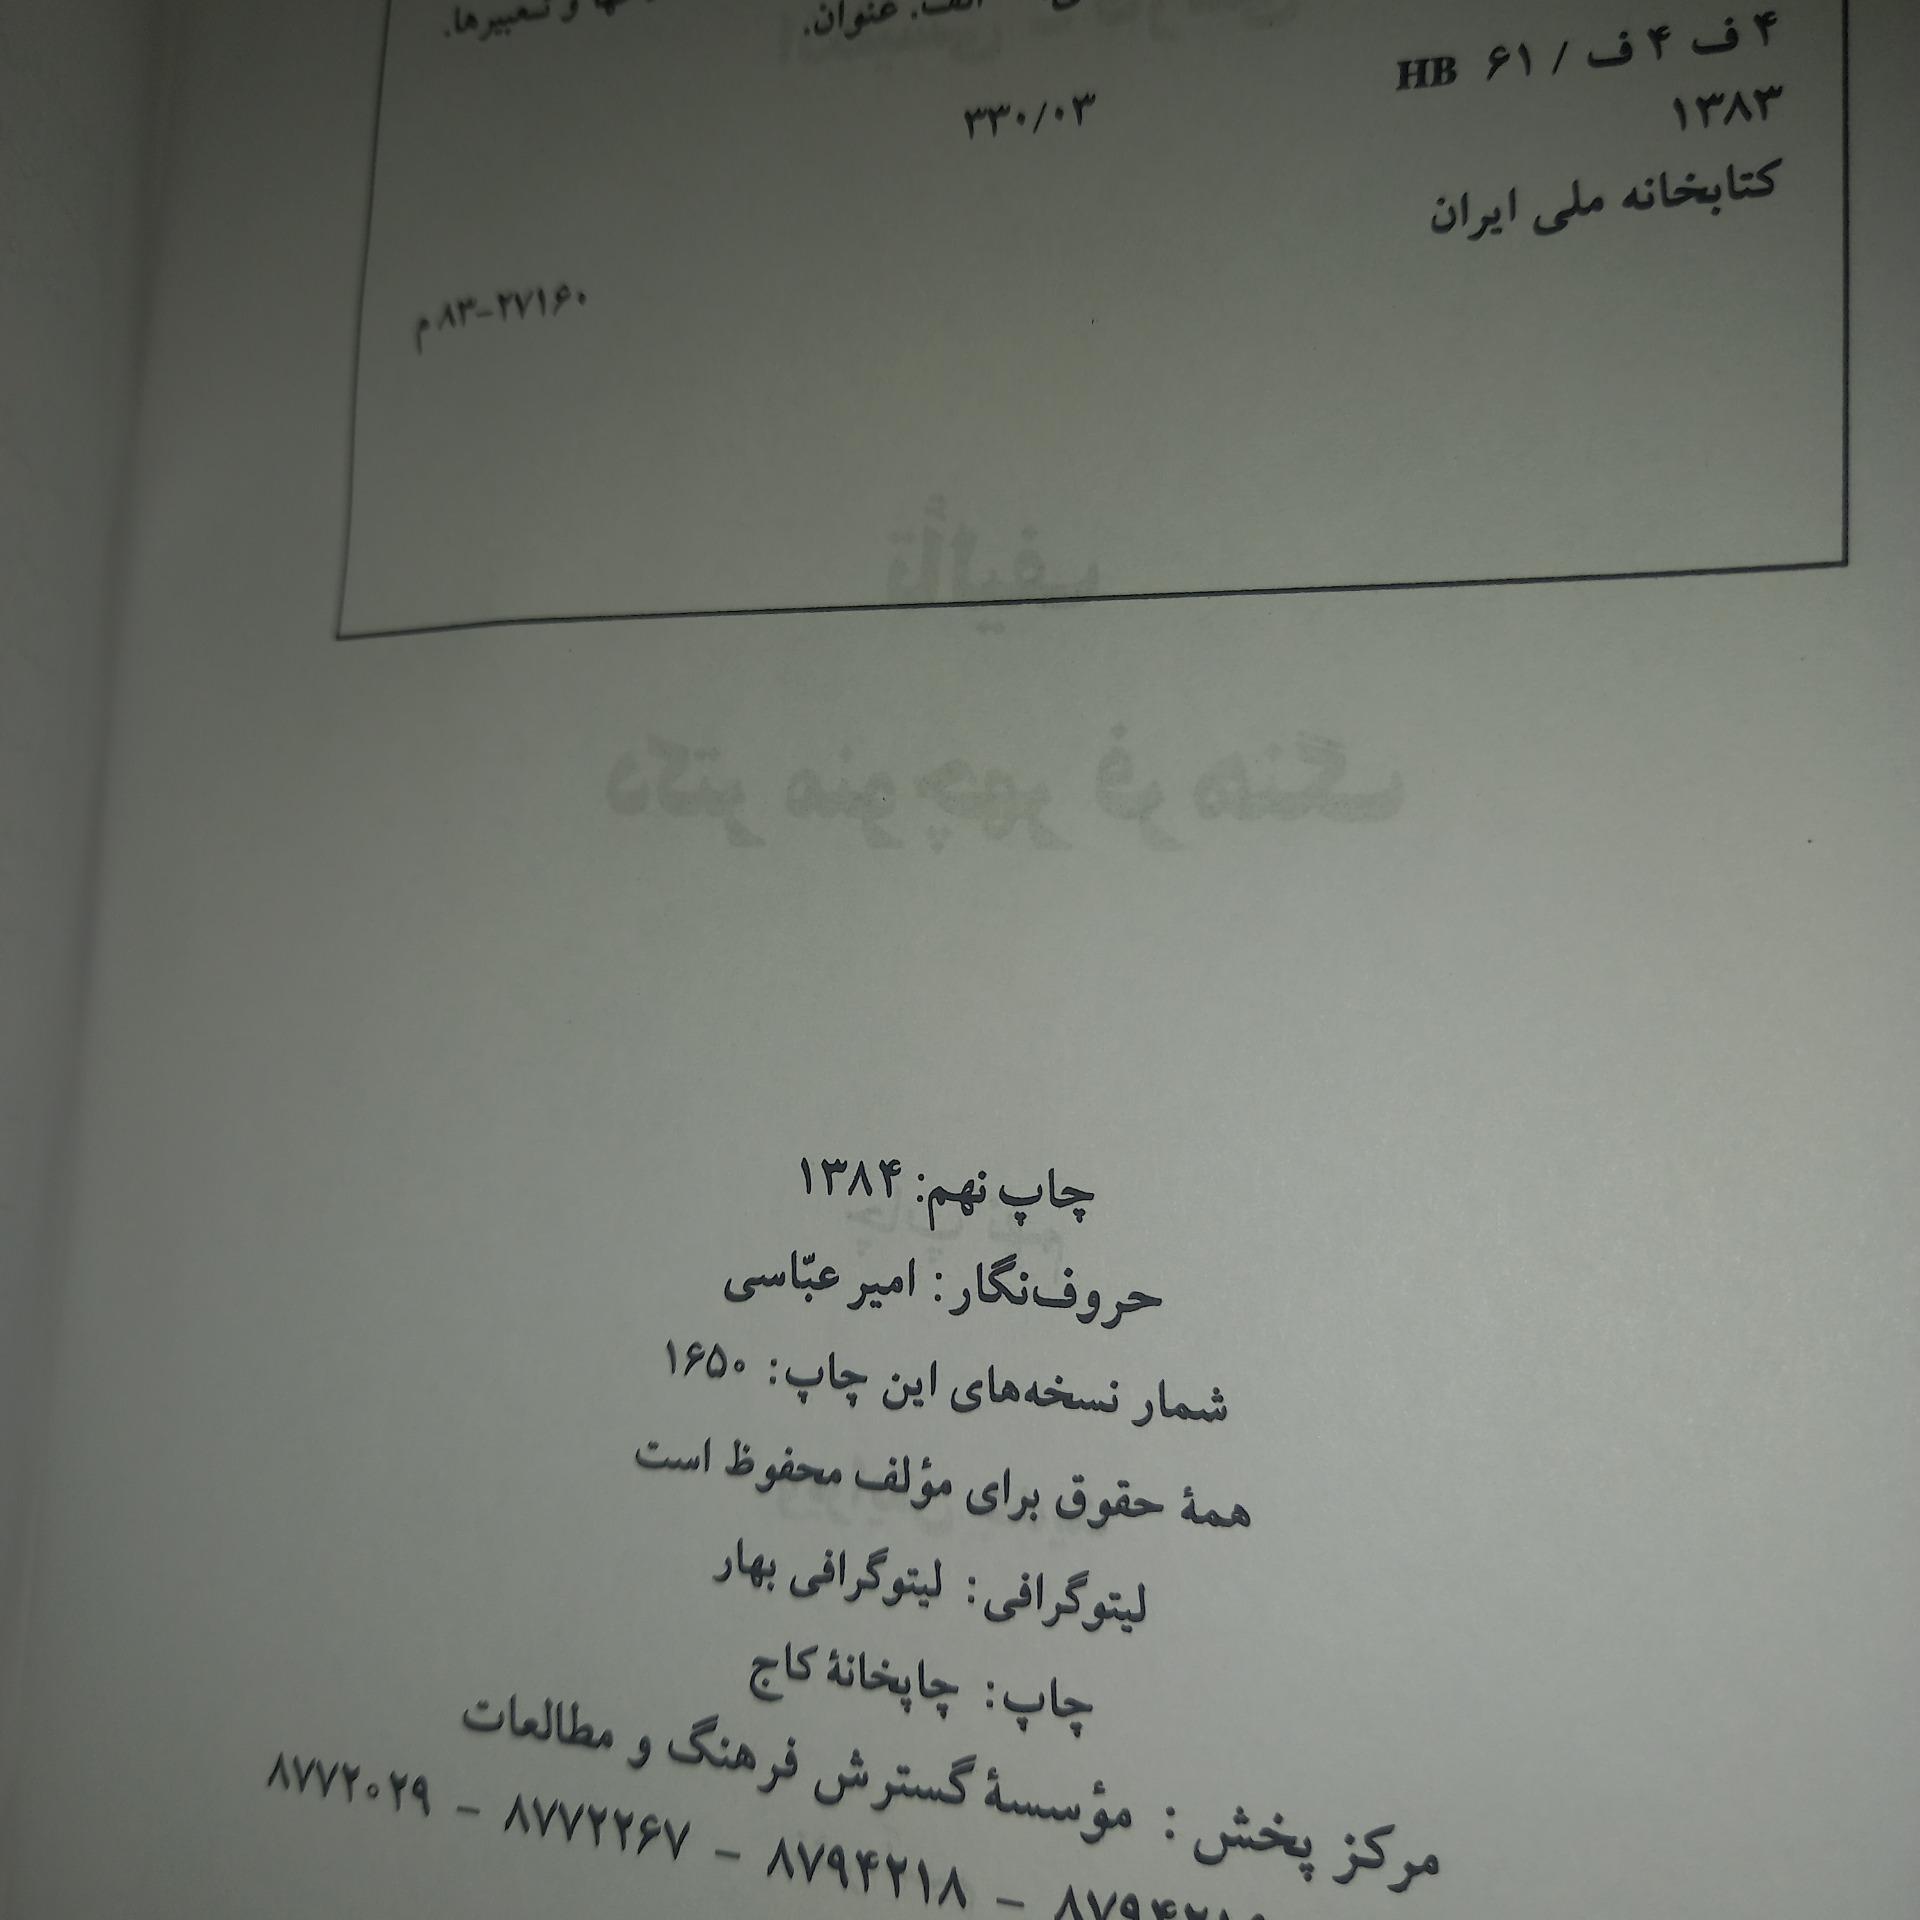 الف. عنوان.
و تعبیرها.
۴ ف ۴ ف / ۶۱ HB
۳۳۰/۰۳
۱۳۸۳
کتابخانه ملی ایران
۸۳-۲۷۱۶۰م
تألیف
دکتر منوچهر فرهنگ
چاپ نهم: ۱۳۸۴
حروف‌نگار: امیر عبّاسی
شمار نسخه‌های این چاپ: ۱۶۵۰
همۀ حقوق برای مؤلف محفوظ است
لیتوگرافی: لیتوگرافی بهار
چاپ: چاپخانۀ کاج
مرکز پخش: مؤسسۀ گسترش فرهنگ و مطالعات
۸۷۹۴۲۱۸ – ۸۷۷۲۲۶۷ – ۸۷۷۲۰۲۹